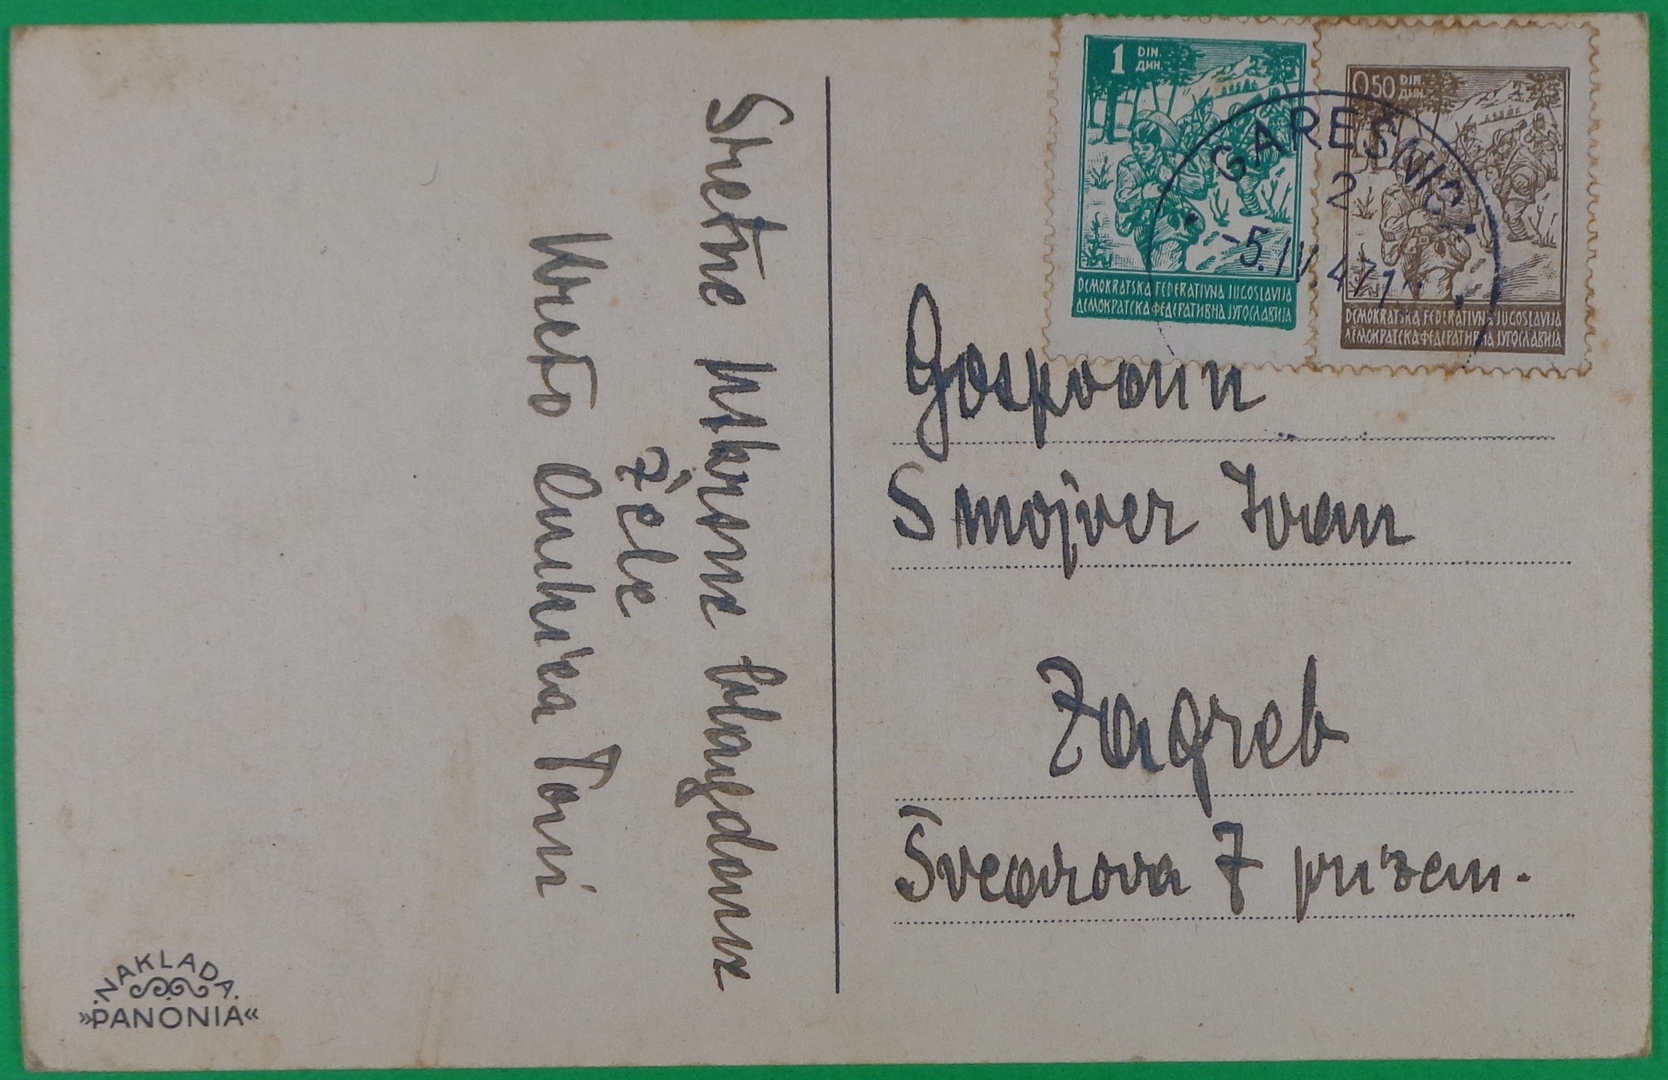 1 DIN.
ДИН.
DEMOKRATSKA FEDERATIVNA JUGOSLAVIJA
ДЕМОКРАТСКА ФЕДЕРАТИВНА ЈУГОСЛАВИЈА
0.50 DIN.
ДИН.
DEMOKRATSKA FEDERATIVNA JUGOSLAVIJA
ДЕМОКРАТСКА ФЕДЕРАТИВНА ЈУГОСЛАВИЈА
GAREŠNICA
2
-5.IV.47
Sretne uskrsne blagdane
žele
Toni
Gospodin
Smojver Ivan
Zagreb
Švearova 7 prizem.
NAKLADA
»PANONIA«